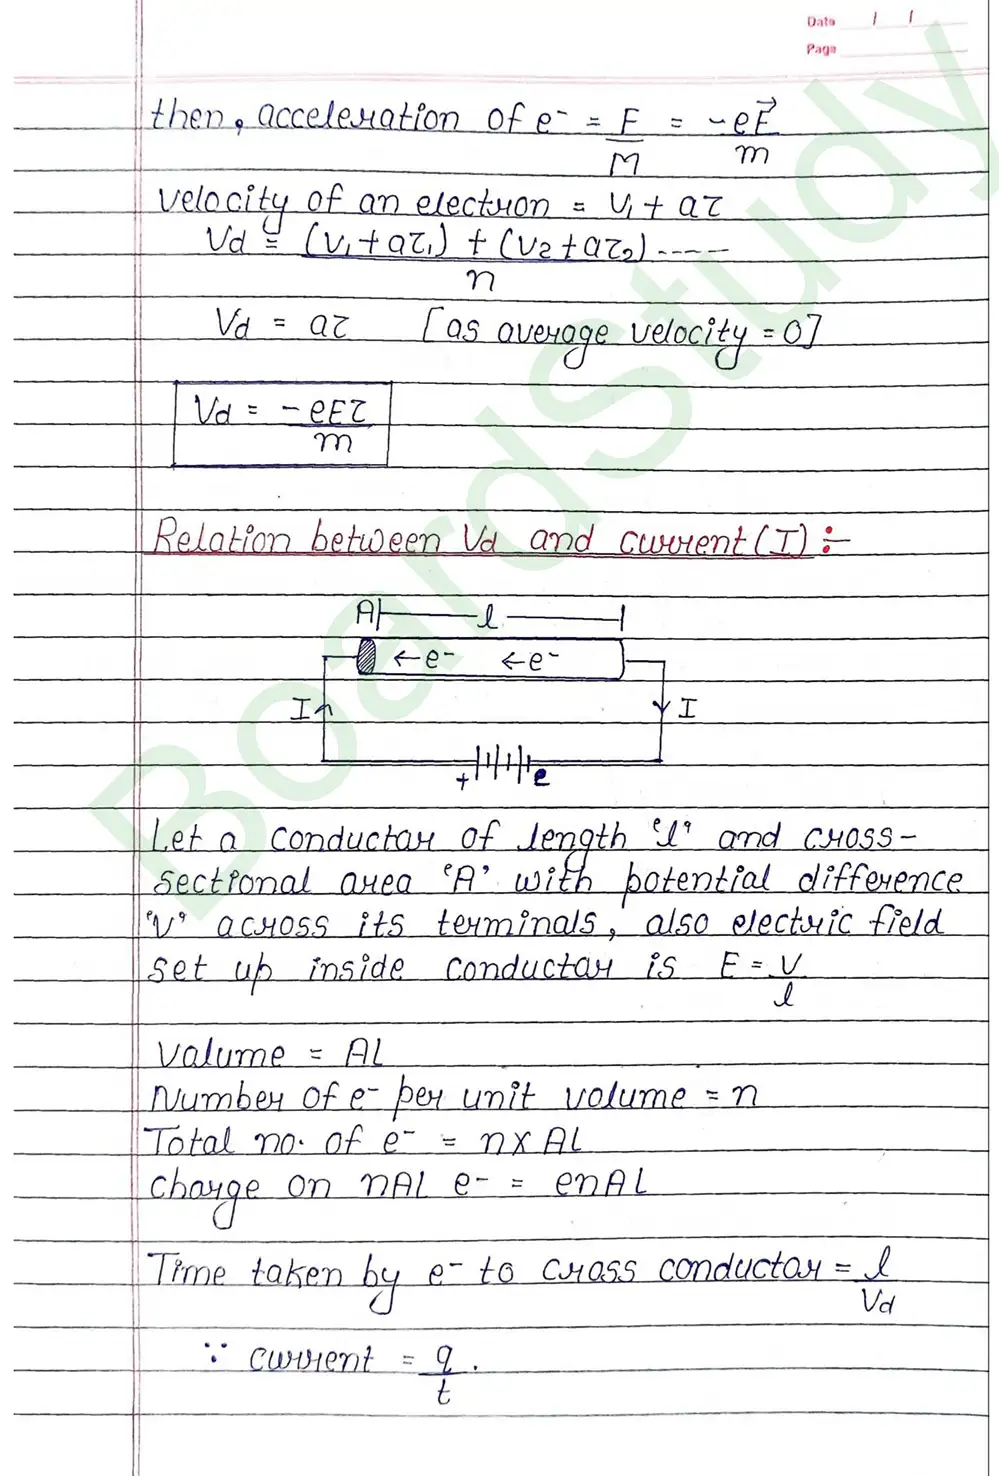 Date / /
Page
then, acceleration of e⁻ = F/M = -eE⃗/m
velocity of an electron = v₁ + aτ
Vd = (v₁ + aτ₁) + (v₂ + aτ₂) ...../n
Vd = aτ [as average velocity = 0]
Vd = -eEτ/m
Relation between Vd and current (I) :-
A l
← e⁻ ← e⁻
I I
+ e
Let a conductar of length 'l' and cross-
sectional area 'A' with potential difference
'V' across its terminals, also electric field
set up inside conductar is E = V/l
valume = Al
Number of e⁻ per unit valume = n
Total no. of e⁻ = n x Al
charge on nAl e⁻ = enAl
Time taken by e⁻ to crass conductar = l/Vd
∵ current = q/t .
BoardStudy